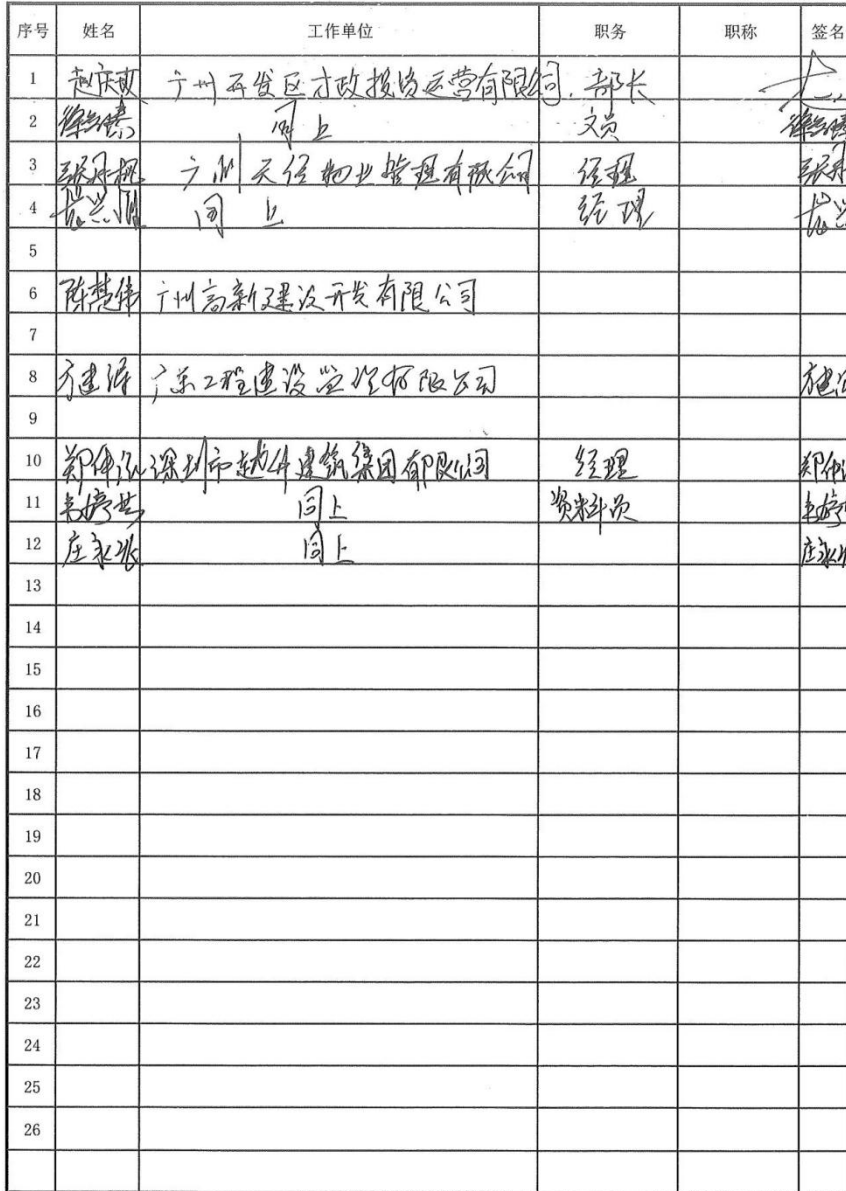 序号 姓名 工作单位 职务 职称 签名
1 赵庆 广州开发区才政投资运营有限公司 部长
2 徐 同上 文员 徐
3 张丹枫 广州天径物业管理有限公司 经理 张丹
4 同上 经理
5
6 陈楚伟 广州高新建设开发有限公司
7
8 方建泽 广东工程建设监理有限公司 方建
9
10 郑仲 深圳市越升建筑集团有限公司 经理 郑仲
11 韦婷 同上 资料员 韦婷
12 庄永 同上 庄永
13
14
15
16
17
18
19
20
21
22
23
24
25
26